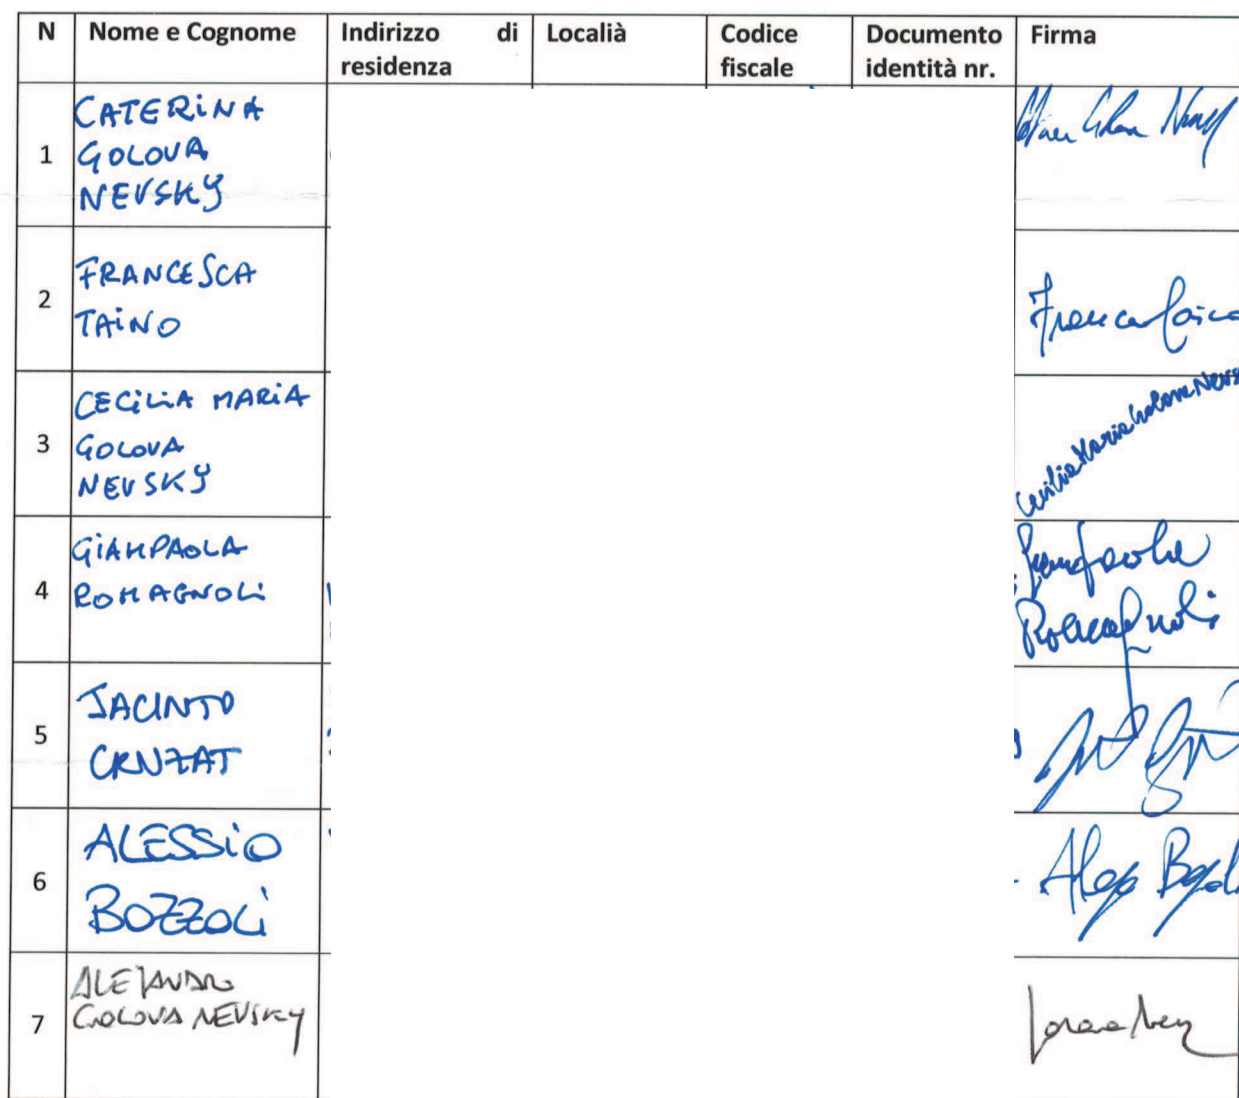 N Nome e Cognome Indirizzo di residenza Localià Codice fiscale Documento identità nr. Firma
1
CATERINA
GOLOVA
NEVSKY
2
FRANCESCA
TAINO
3
CECILIA MARIA
GOLOVA
NEVSKY
Cecilia Maria Golova Nevs
4
GIAMPAOLA
ROMAGNOLI
Giampaola
Romagnoli
5
JACINTO
CRUZAT
6
ALESSIO
BOZZOLI
7
ALEJANDRO
GOLOVA NEVSKY